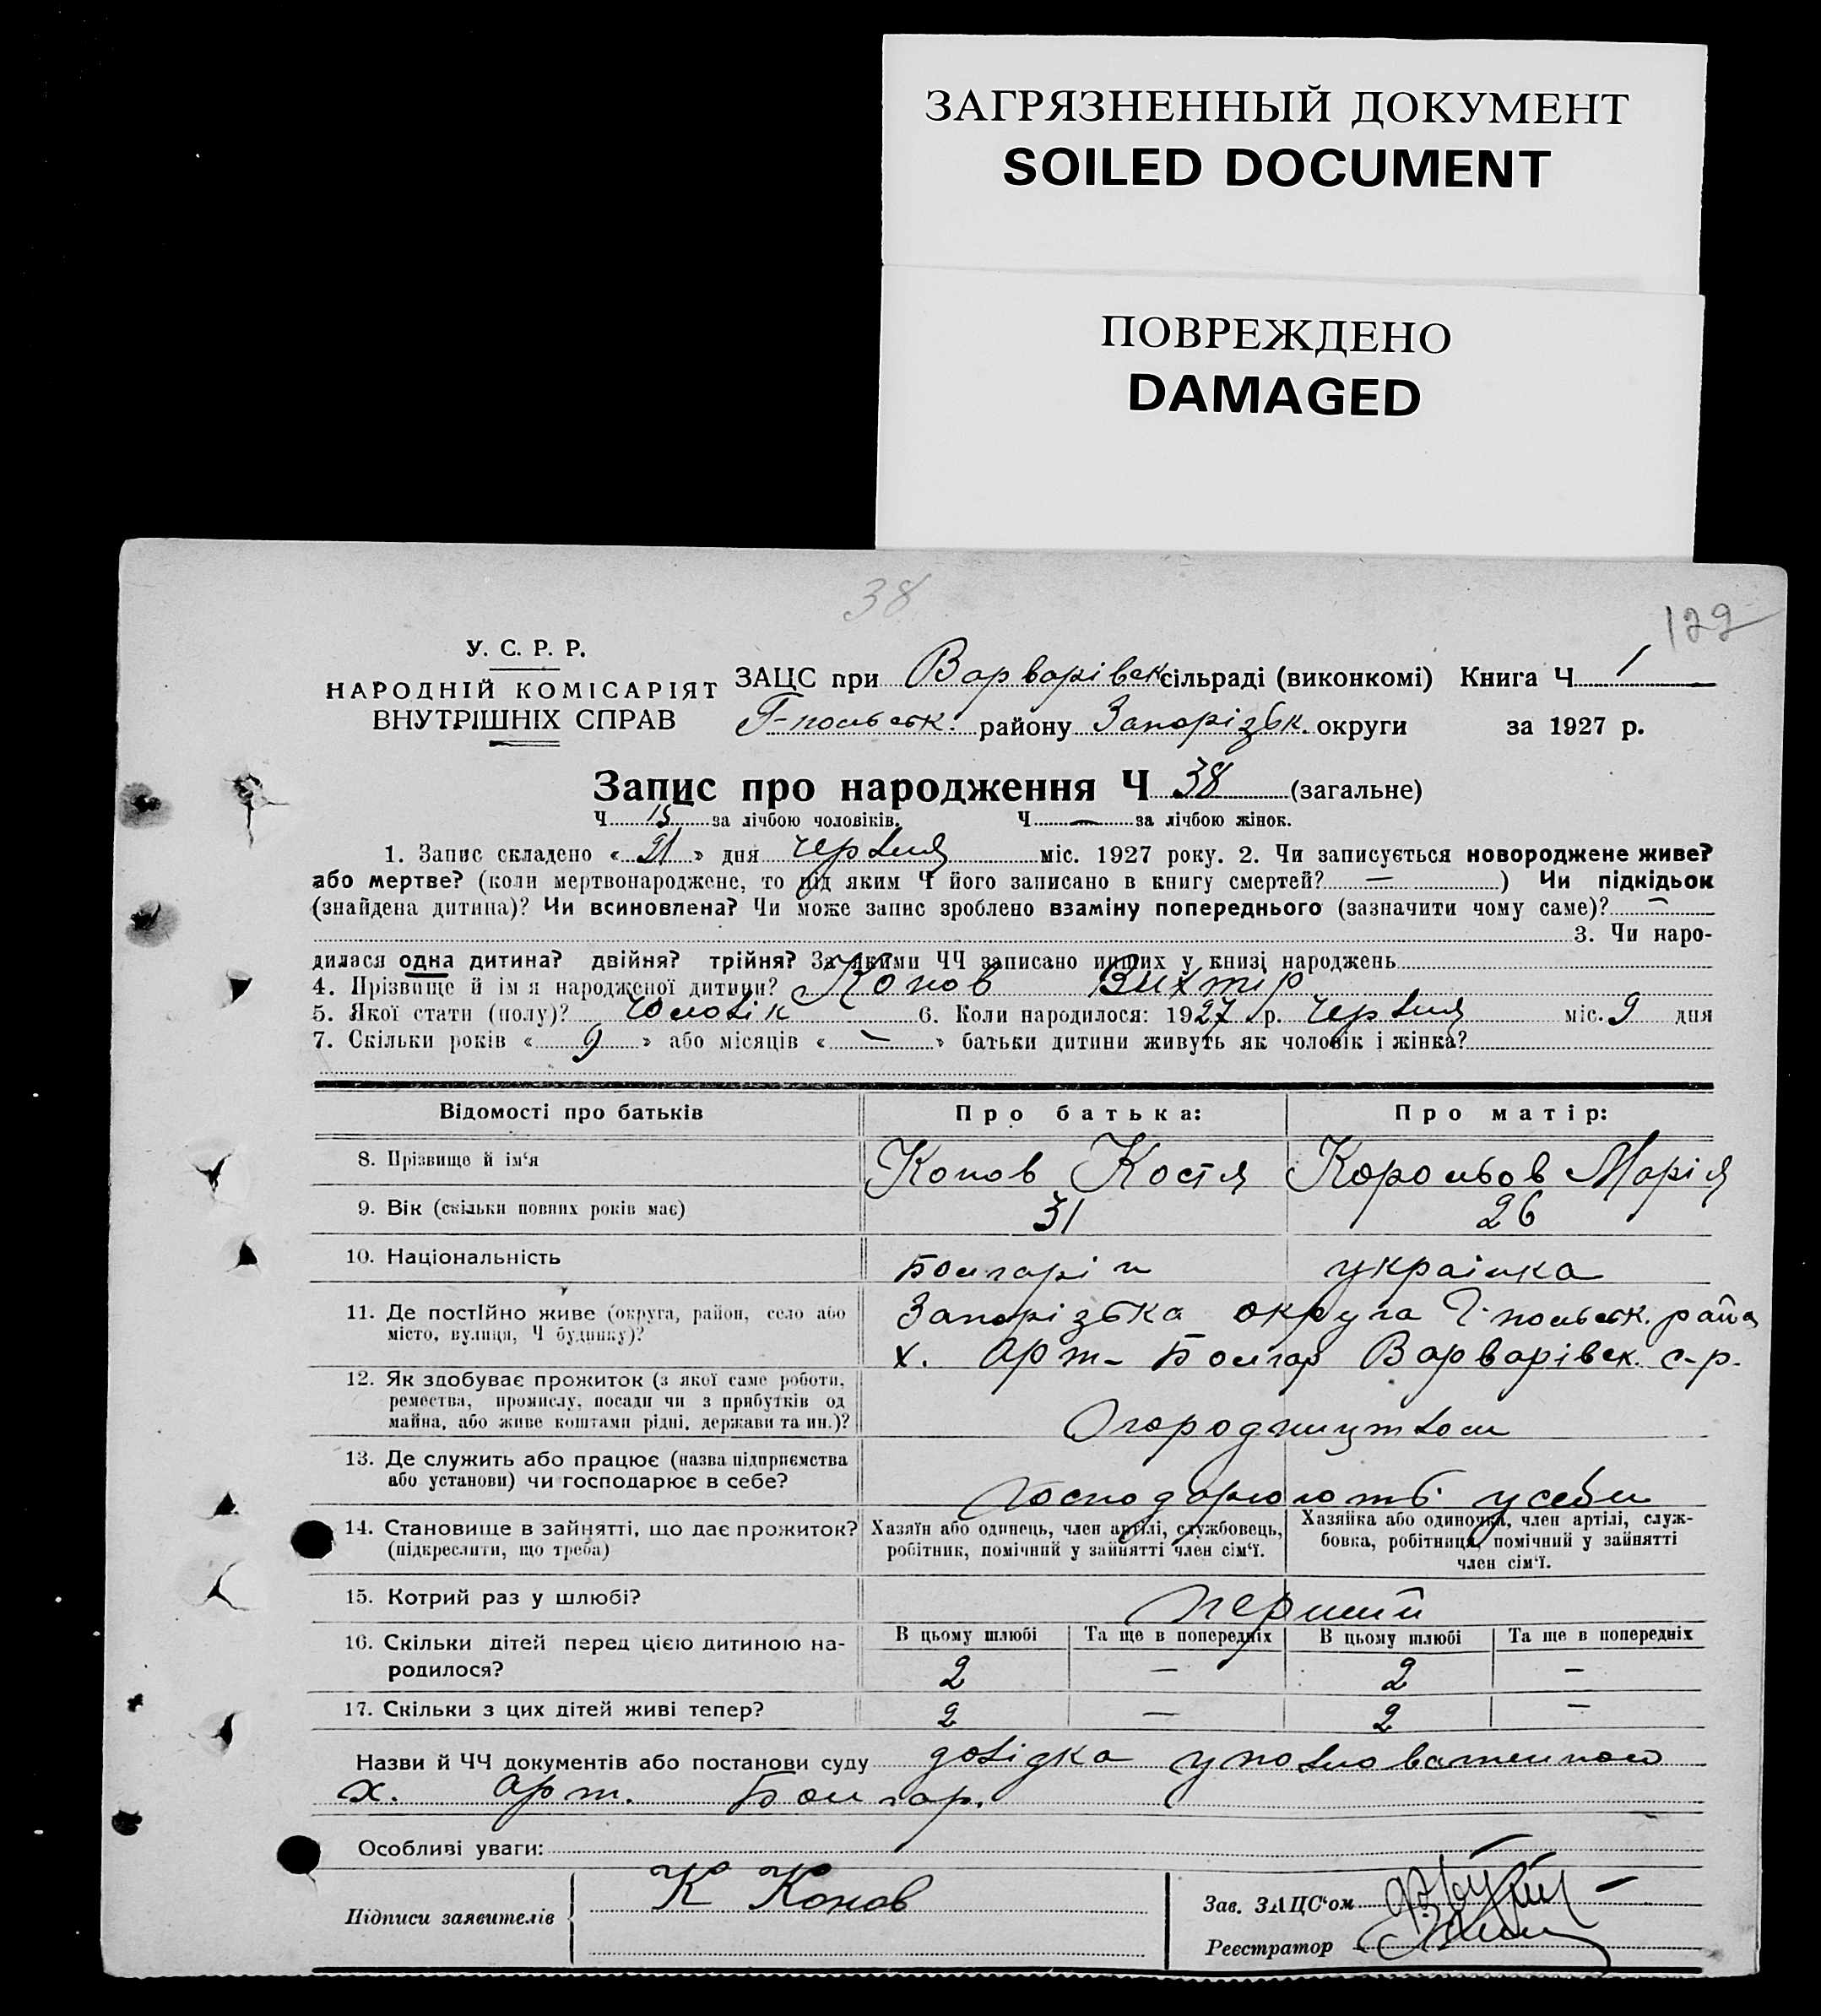 ЗАГРЯЗНЕННЫЙ ДОКУМЕНТ
SOILED DOCUMENT
ПОВРЕЖДЕНО
DAMAGED
38
122
У. С. Р. Р.
НАРОДНІЙ КОМІСАРІЯТ
ВНУТРІШНІХ СПРАВ
ЗАЦС при Варварівськ сільраді (виконкомі) Книга Ч 1
Г-польськ. району Запорізьк. округи за 1927 р.
Запис про народження Ч 38 (загальне)
Ч 15 за лічбою чоловіків. Ч — за лічбою жінок.
1. Запис складено « 21 » дня червня міс. 1927 року. 2. Чи записується новороджене живе?
або мертве? (коли мертвонароджене, то під яким Ч його записано в книгу смертей? — ) Чи підкідьок
(знайдена дитина)? Чи всиновлена? Чи може запис зроблено взаміну попереднього (зазначити чому саме)? —
3. Чи наро-
дилася одна дитина? двійня? трійня? За якими ЧЧ записано инших у книзі народжень
4. Прізвище й ім'я народженої дитини? Конов Вихтір
5. Якої стати (полу)? Чоловік 6. Коли народилося: 1927 р. червня міс. 9 дня
7. Скільки років « 9 » або місяців « — » батьки дитини живуть як чоловік і жінка?
Відомості про батьків Про батька: Про матір:
8. Прізвище й ім'я Конов Костя Корольов Марія
9. Вік (скільки повних років має) 31 26
10. Національність Болгарін українка
11. Де постІйно живе (округа, район, село або Запорізька округа Г-польськ. району
місто, вулиця, Ч будинку)? х. Арт- Болгар Варварівськ. с-р.
12. Як здобуває прожиток (з якої саме роботи,
ремества, промислу, посади чи з прибутків од
майна, або живе коштами рідні, держави та ин.)? Огородництвом
13. Де служить або працює (назва підприємства
або установи) чи господарює в себе? Господарюють у себи
14. Становище в зайнятті, що дає прожиток? Хазяїн або одинець, член артілі, службовець, Хазяйка або одиночка, член артілі, служ-
(підкреслити, що треба) робітник, помічний у зайнятті член сім'ї. бовка, робітниця, помічний у зайнятті
член сім'ї.
15. Котрий раз у шлюбі? перший
16. Скільки дітей перед цією дитиною на- В цьому шлюбі Та ще в попередніх В цьому шлюбі Та ще в попередніх
родилося? 2 — 2 —
17. Скільки з цих дітей живі тепер? 2 — 2 —
Назви й ЧЧ документів або постанови суду довідка уповноваженного
х. арт. Болгар.
Особливі уваги:
Підписи заявителів К Конов
Зав. ЗАЦС'ом
Реєстратор